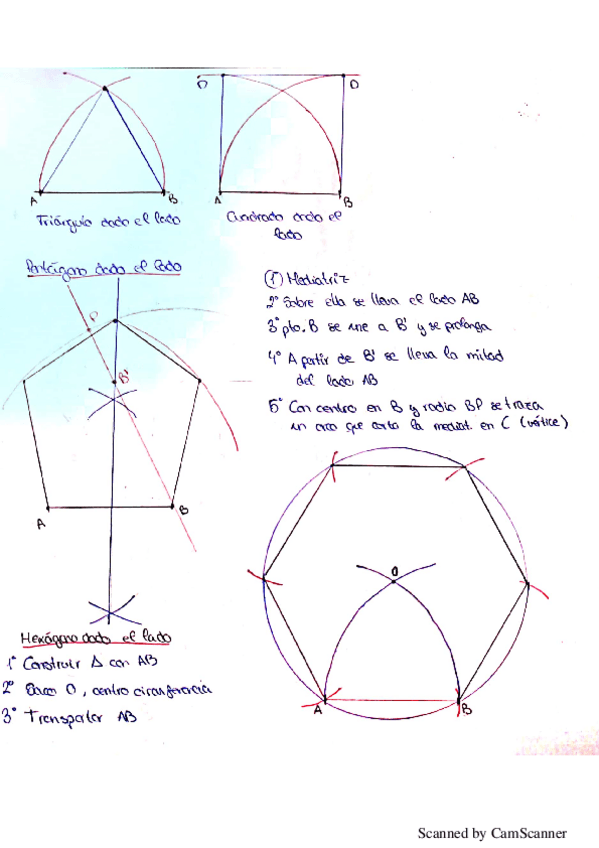 D D
A B A B
Triángulo dado el lado
Cuadrado dado el
lado
Pentágono dado el lado
P
B'
A B
(1º) Mediatriz
2º Sobre ella se lleva el lado AB
3º pto. B se une a B' y se prolonga
4º A partir de B' se lleva la mitad
del lado AB
5º Con centro en B y radio BP se traza
un arco que corta la mediat. en C (vértice)
O
A B
Hexágono dado el lado
1º Construir Δ con AB
2º O, centro circunferencia
3º AB
Scanned by CamScanner